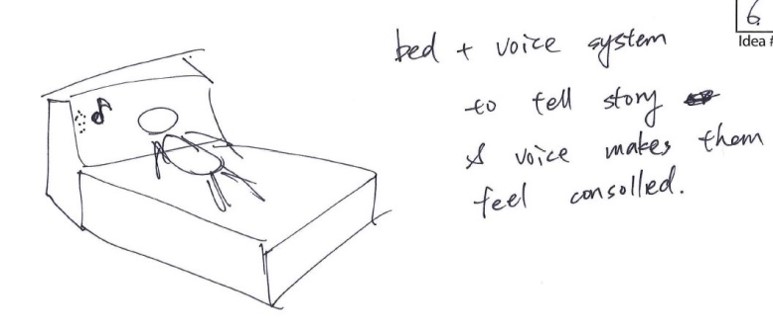 6
Idea #
bed + voice system
to tell story
& voice makes them
feel consolled.